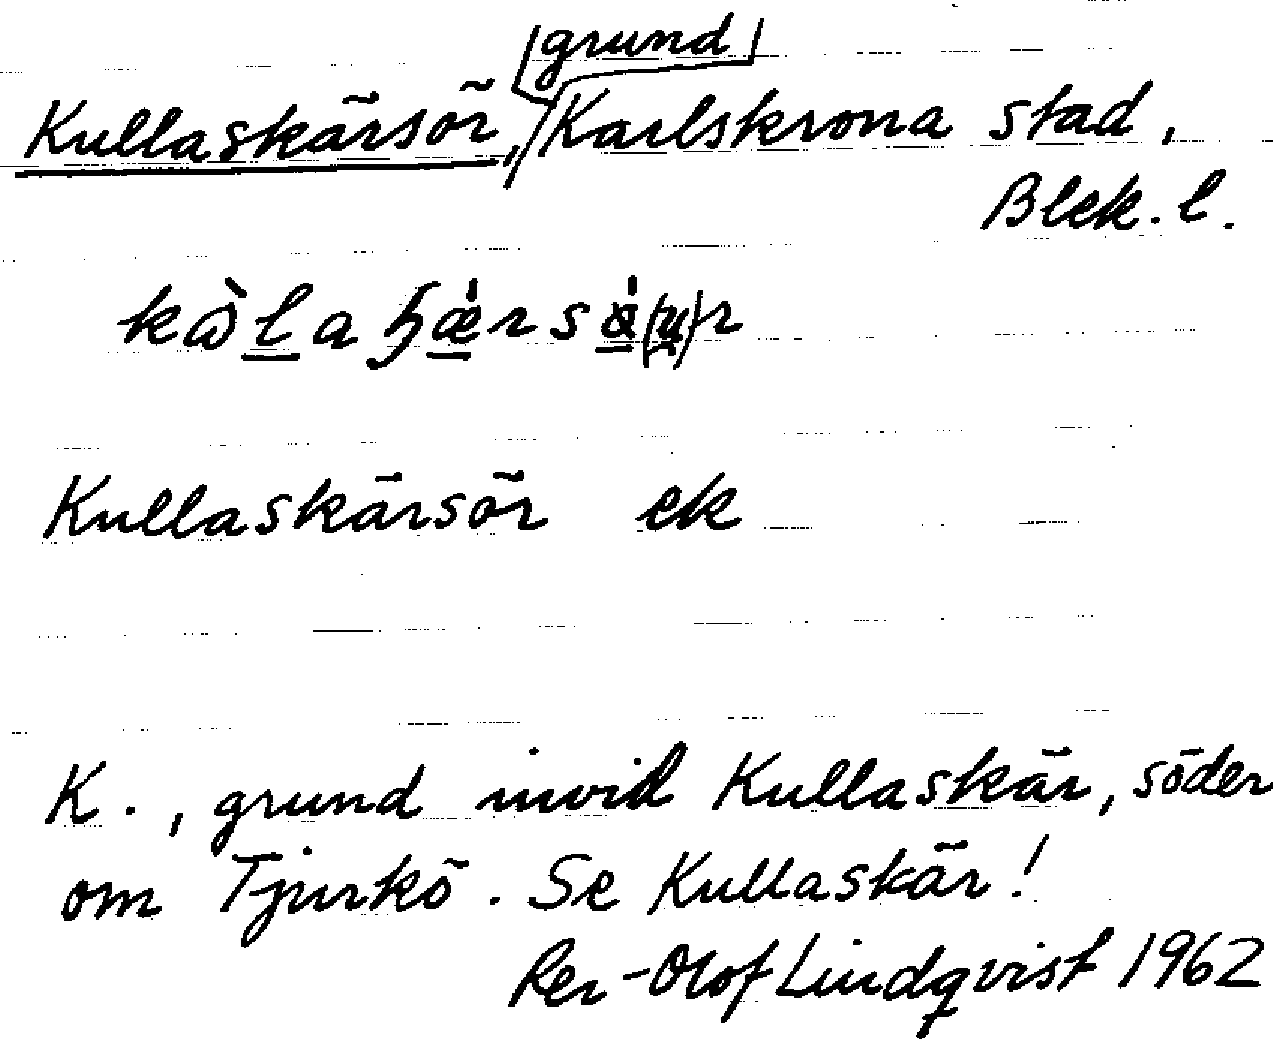 grund
Kullaskärsör, Karlskrona stad,
Blek. l.
Kullaskärsör ek
K., grund invid Kullaskär, söder
om Tjurkö. Se Kullaskär!
Per-Olof Lindqvist 1962